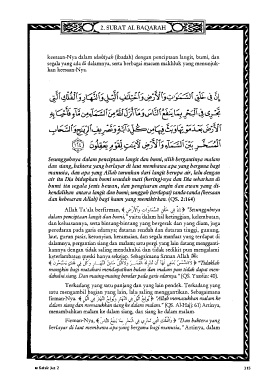 2. SURAT AL BAQARAH
keesaan-Nya dalam uluhiyah (ibadah) dengan penciptaan langit, bumi, dan
segala yang ada di dalamnya, serta berbagai macam makhluk yang menunjuk-
kan keesaan-Nya.
إِنَّ فِي خَلْقِ السَّمَاوَاتِ وَالْأَرْضِ وَاخْتِلَافِ اللَّيْلِ وَالنَّهَارِ وَالْفُلْكِ الَّتِي
تَجْرِي فِي الْبَحْرِ بِمَا يَنفَعُ النَّاسَ وَمَا أَنزَلَ اللَّهُ مِنَ السَّمَاءِ مِن مَّاءٍ فَأَحْيَا بِهِ
الْأَرْضَ بَعْدَ مَوْتِهَا وَبَثَّ فِيهَا مِن كُلِّ دَابَّةٍ وَتَصْرِيفِ الرِّيَاحِ وَالسَّحَابِ
الْمُسَخَّرِ بَيْنَ السَّمَاءِ وَالْأَرْضِ لَآيَاتٍ لِّقَوْمٍ يَعْقِلُونَ
Sesungguhnya dalam penciptaan langit dan bumi, silih bergantinya malam
dan siang, bahtera yang berlayar di laut membawa apa yang berguna bagi
manusia, dan apa yang Allah turunkan dari langit berupa air, lalu dengan
air itu Dia hidupkan bumi sesudah mati (kering)nya dan Dia sebarkan di
bumi itu segala jenis hewan, dan pengisaran angin dan awan yang di-
kendalikan antara langit dan bumi; sungguh (terdapat) tanda-tanda (keesaan
dan kebesaran Allah) bagi kaum yang memikirkan. (QS. 2:164)
Allah Ta'ala berfirman, "Sesungguhnya
dalam penciptaan langit dan bumi," yaitu dalam hal ketinggian, kelembutan,
dan keluasannya, serta bintang-bintang yang bergerak dan yang diam, juga
peredaran pada garis edarnya; dataran rendah dan dataran tinggi, gunung,
laut, gurun pasir, kesunyian, keramaian, dan segala manfaat yang terdapat di
dalamnya, pergantian siang dan malam; satu pergi yang lain datang mengganti-
kannya dengan tidak saling mendahului dan tidak sedikit pun mengalami
keterlambatan meski hanya sekejap. Sebagaimana firman Allah
"Tidaklah
mungkin bagi matahari mendapatkan bulan dan malam pun tidak dapat men-
dahului siang. Dan masing-masing beredar pada garis edarnya." (QS. Yaasiin: 40).
Terkadang yang satu panjang dan yang lain pendek. Terkadang yang
satu mengambil bagian yang lain, lalu saling menggantikan. Sebagaimana
firman-Nya, "Allah memasukkan malam ke
dalam siang dan memasukkan siang ke dalam malam." (QS. Al-Hajj: 61) Artinya,
menambahkan malam ke dalam siang, dan siang ke dalam malam.
Firman-Nya, "Dan bahtera yang
berlayar di laut membawa apa yang berguna bagi manusia," Artinya, dalam
Juz 2
315